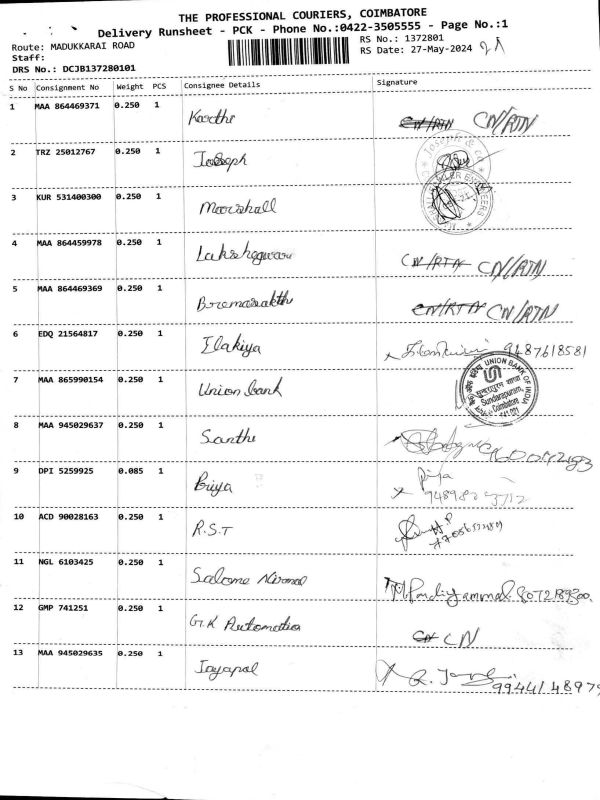 THE PROFESSIONAL COURIERS, COIMBATORE
Delivery Runsheet - PCK - Phone No.:0422-3505555 - Page No.:1
Route: MADUKKARAI ROAD RS No.: 1372801
Staff: RS Date: 27-May-2024
DRS No.: DCJB137280101
S No Consignment No Weight PCS Consignee Details Signature
1 MAA 864469371 0.250 1 Karthi CN/RTN CN/RTN
2 TRZ 25012767 0.250 1 Joseph
3 KUR 531400300 0.250 1 Marshall
4 MAA 864459978 0.250 1 CN/RTN CN/RTN
5 MAA 864469369 0.250 1 CN/RTN CN/RTN
6 EDQ 21564817 0.250 1 Ilakiya 9487618581
7 MAA 865990154 0.250 1 Union bank UNION BANK OF INDIA Sundarapuram, Coimbatore
8 MAA 945029637 0.250 1 Santhi
9 DPI 5259925 0.085 1 Priya priya
10 ACD 90028163 0.250 1 R.S.T
11 NGL 6103425 0.250 1 Salome Nirmal M. Pandiyammal
12 GMP 741251 0.250 1 G.K Automation CN CN
13 MAA 945029635 0.250 1 Jayapal 9944148979